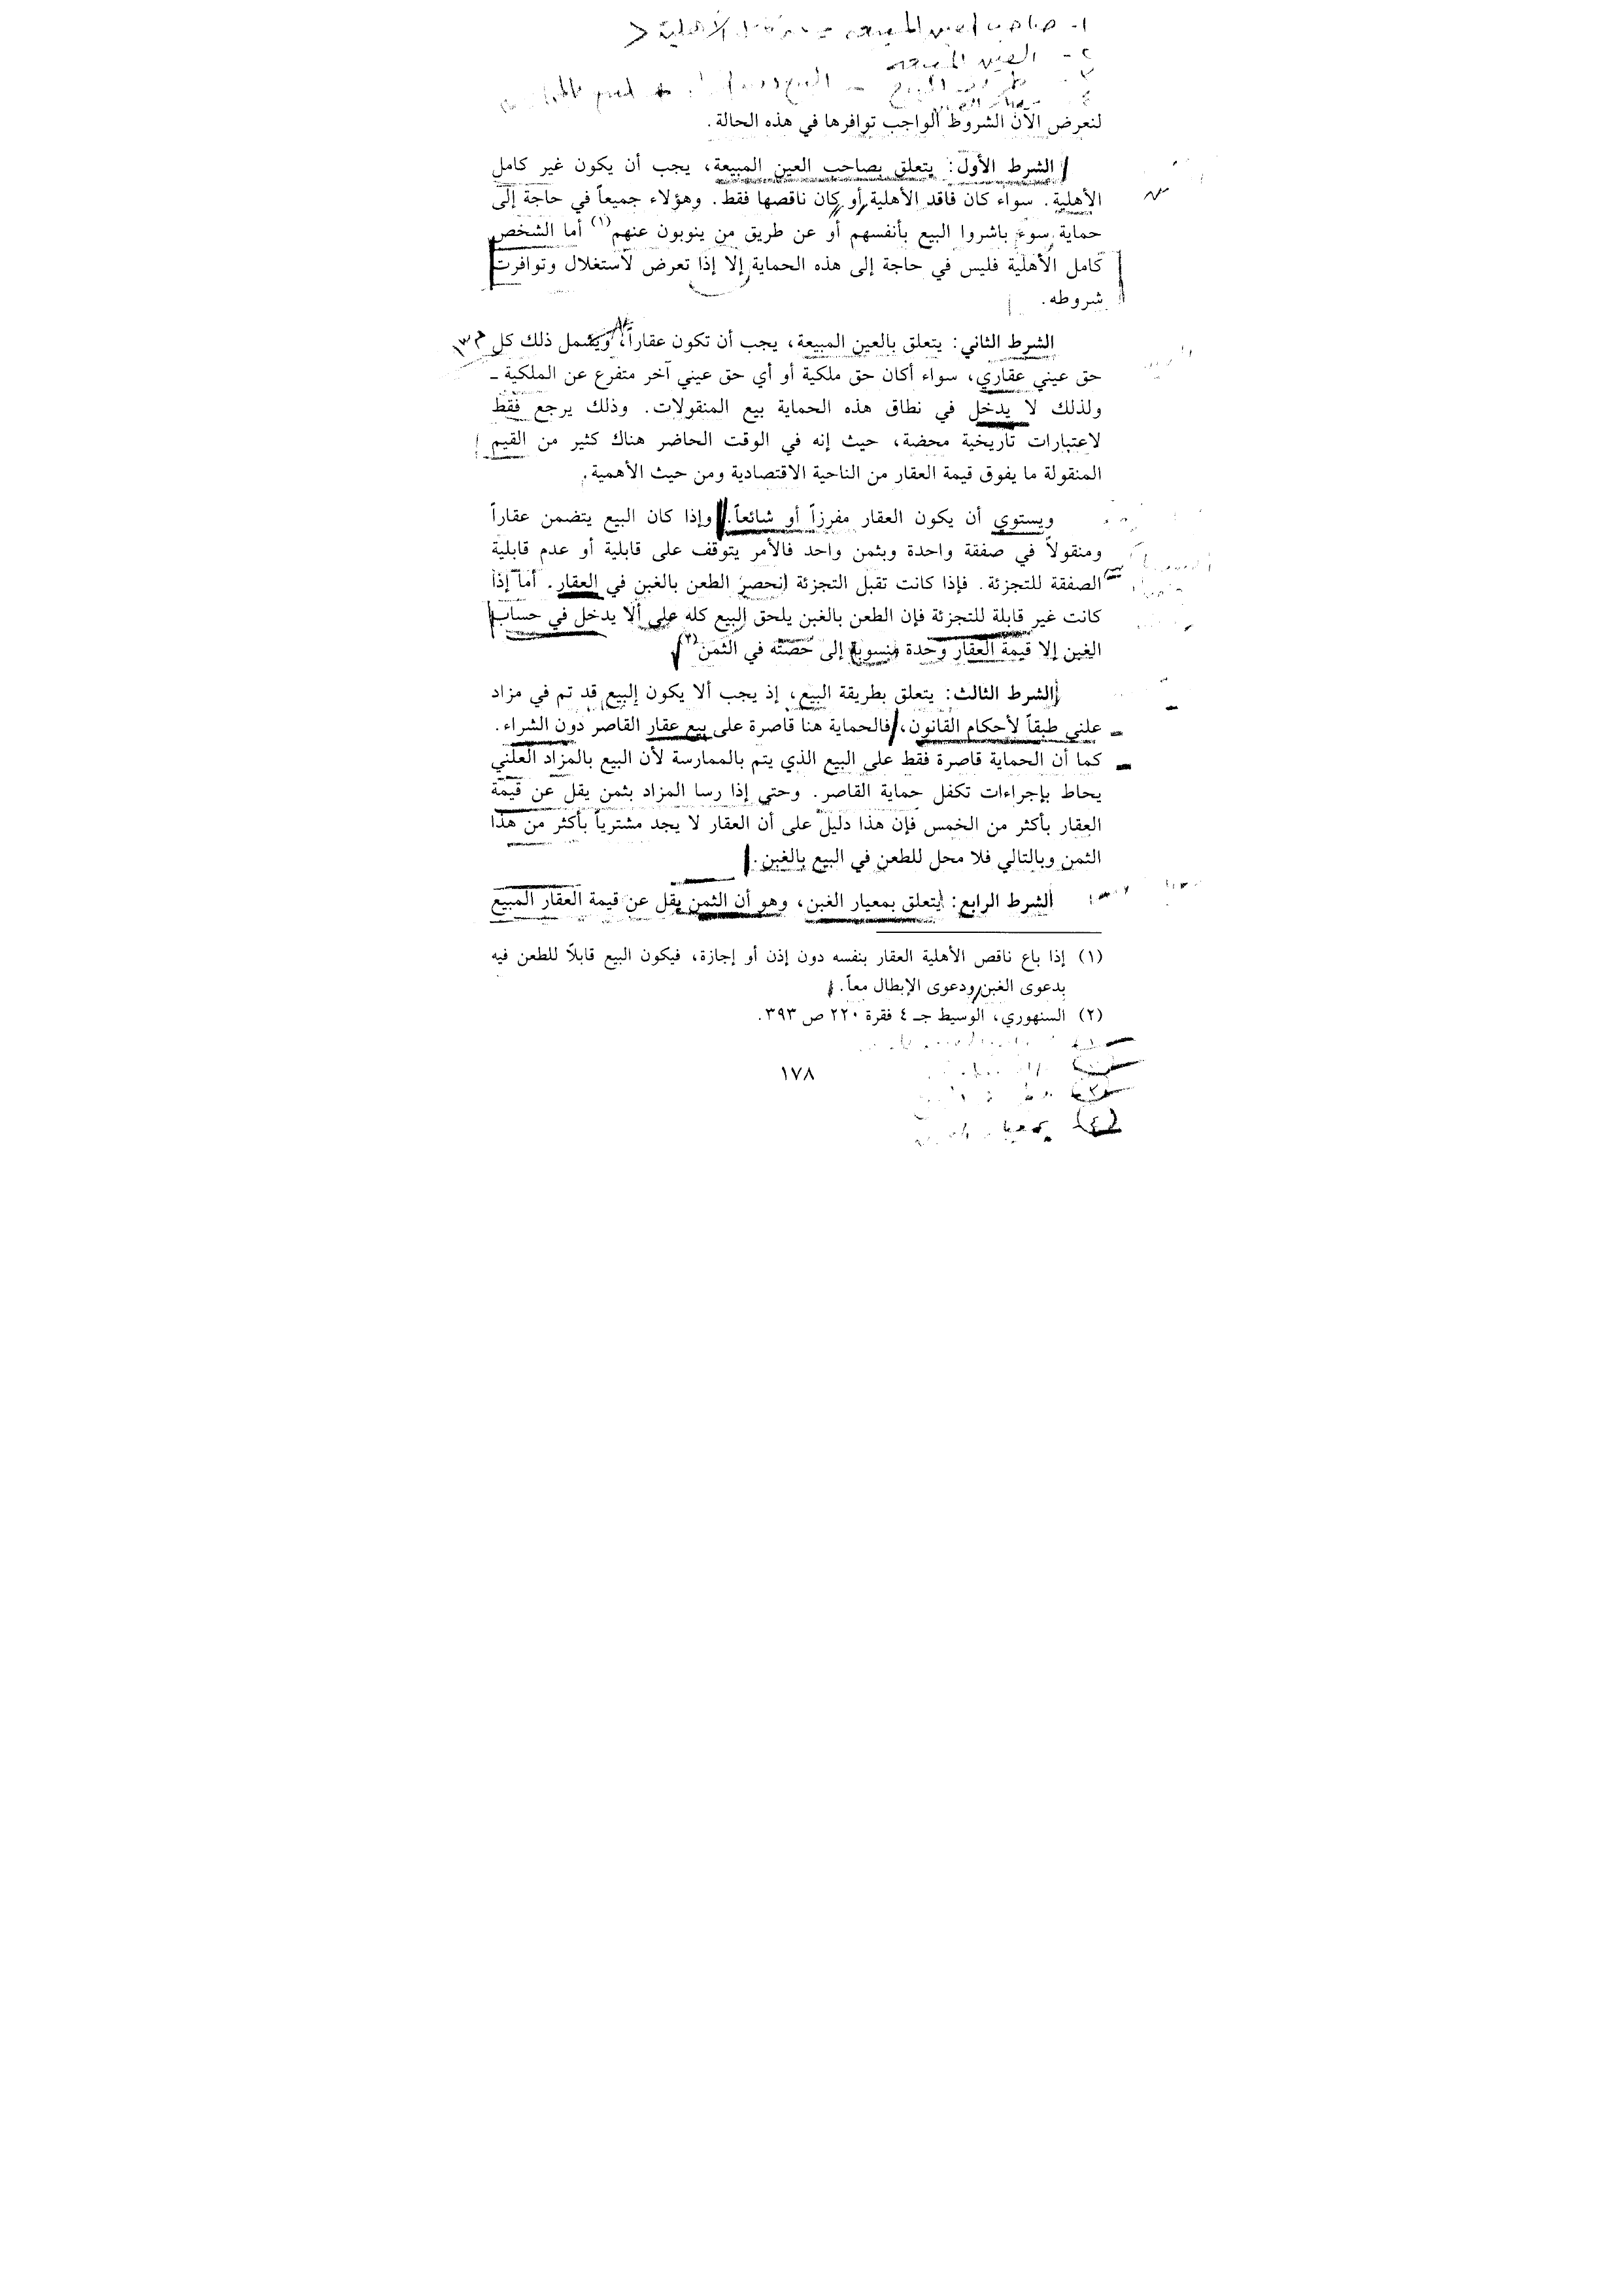 العين المبيعة
لنعرض الآن الشروط الواجب توافرها في هذه الحالة.
الشرط الأول: يتعلق بصاحب العين المبيعة، يجب أن يكون غير كامل
الأهلية. سواء كان فاقد الأهلية أو كان ناقصها فقط. وهؤلاء جميعاً في حاجة إلى
حماية سوء باشروا البيع بأنفسهم أو عن طريق من ينوبون عنهم(١) أما الشخص
كامل الأهلية فليس في حاجة إلى هذه الحماية إلا إذا تعرض لاستغلال وتوافرت
شروطه.
الشرط الثاني: يتعلق بالعين المبيعة، يجب أن تكون عقاراً، ويشمل ذلك كل
حق عيني عقاري، سواء أكان حق ملكية أو أي حق عيني آخر متفرع عن الملكية ـ
ولذلك لا يدخل في نطاق هذه الحماية بيع المنقولات. وذلك يرجع فقط
لاعتبارات تاريخية محضة، حيث إنه في الوقت الحاضر هناك كثير من القيم
المنقولة ما يفوق قيمة العقار من الناحية الاقتصادية ومن حيث الأهمية.
ويستوي أن يكون العقار مفرزاً أو شائعاً. وإذا كان البيع يتضمن عقاراً
ومنقولاً في صفقة واحدة وبثمن واحد فالأمر يتوقف على قابلية أو عدم قابلية
الصفقة للتجزئة. فإذا كانت تقبل التجزئة إنحصر الطعن بالغبن في العقار. أما إذا
كانت غير قابلة للتجزئة فإن الطعن بالغبن يلحق البيع كله على ألا يدخل في حساب
الغبن إلا قيمة العقار وحدة منسوبة إلى حصته في الثمن(٢)
الشرط الثالث: يتعلق بطريقة البيع، إذ يجب ألا يكون البيع قد تم في مزاد
علني طبقاً لأحكام القانون، فالحماية هنا قاصرة على بيع عقار القاصر دون الشراء.
كما أن الحماية قاصرة فقط على البيع الذي يتم بالممارسة لأن البيع بالمزاد العلني
يحاط بإجراءات تكفل حماية القاصر. وحتى إذا رسا المزاد بثمن يقل عن قيمة
العقار بأكثر من الخمس فإن هذا دليل على أن العقار لا يجد مشترياً بأكثر من هذا
الثمن وبالتالي فلا محل للطعن في البيع بالغبن.
الشرط الرابع: يتعلق بمعيار الغبن، وهو أن الثمن يقل عن قيمة العقار المبيع
(١) إذا باع ناقص الأهلية العقار بنفسه دون إذن أو إجازة، فيكون البيع قابلاً للطعن فيه
بدعوى الغبن ودعوى الإبطال معاً.
(٢) السنهوري، الوسيط جـ ٤ فقرة ٢٢٠ ص ٣٩٣.
١٧٨
(٤)